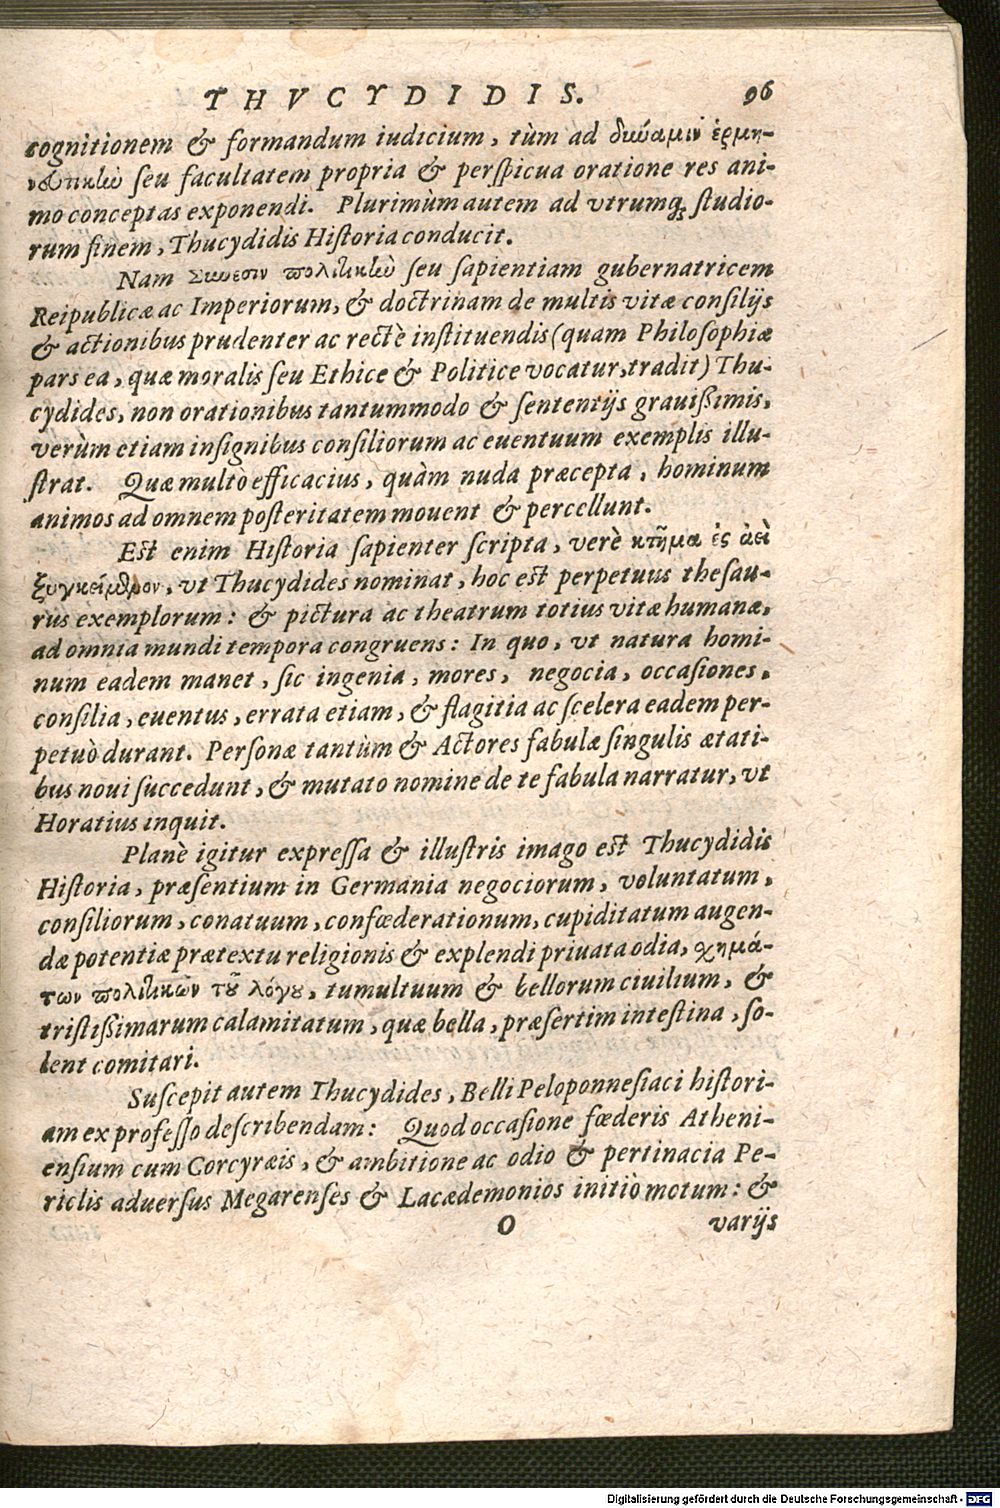 THVCYDIDIS. 96
cognitionem & formandum iudicium, tùm ad δυύαμιν ἑρμη-
νδυτικὼ seu facultatem propria & perspicua oratione res ani-
mo conceptas exponendi. Plurimùm autem ad vtrumq; studio-
rum finem, Thucydidis Historia conducit.
Nam Σύνεσιν πολιτικὼ seu sapientiam gubernatricem
Reipublicæ ac Imperiorum, & doctrinam de multis vitæ consilijs
& actionibus prudenter ac rectè instituendis (quam Philosophiæ
pars ea, quæ moralis seu Ethice & Politice vocatur, tradit) Thu-
cydides, non orationibus tantummodo & sententijs grauißimis,
verùm etiam insignibus consiliorum ac euentuum exemplis illu-
strat. Quæ multò efficacius, quàm nuda præcepta, hominum
animos ad omnem posteritatem mouent & percellunt.
Est enim Historia sapienter scripta, verè κτῆμα ἐς ἀεὶ
ξυγκείμενον, vt Thucydides nominat, hoc est perpetuus thesau-
rus exemplorum: & pictura ac theatrum totius vitæ humanæ,
ad omnia mundi tempora congruens: In quo, vt natura homi-
num eadem manet, sic ingenia, mores, negocia, occasiones,
consilia, euentus, errata etiam, & flagitia ac scelera eadem per-
petuò durant. Personæ tantùm & Actores fabulæ singulis ætati-
bus noui succedunt, & mutato nomine de te fabula narratur, vt
Horatius inquit.
Planè igitur expressa & illustris imago est Thucydidis
Historia, præsentium in Germania negociorum, voluntatum,
consiliorum, conatuum, confœderationum, cupiditatum augen-
dæ potentiæ prætextu religionis & explendi priuata odia, χημά-
των πολιτικῶν τοῦ λόγου, tumultuum & bellorum ciuilium, &
tristißimarum calamitatum, quæ bella, præsertim intestina, so-
lent comitari.
Suscepit autem Thucydides, Belli Peloponnesiaci histori-
am ex professo describendam: Quod occasione fœderis Atheni-
ensium cum Corcyræis, & ambitione ac odio & pertinacia Pe-
riclis aduersus Megarenses & Lacædemonios initiò motum: &
O varijs
Digitalisierung gefördert durch die Deutsche Forschungsgemeinschaft - DFG